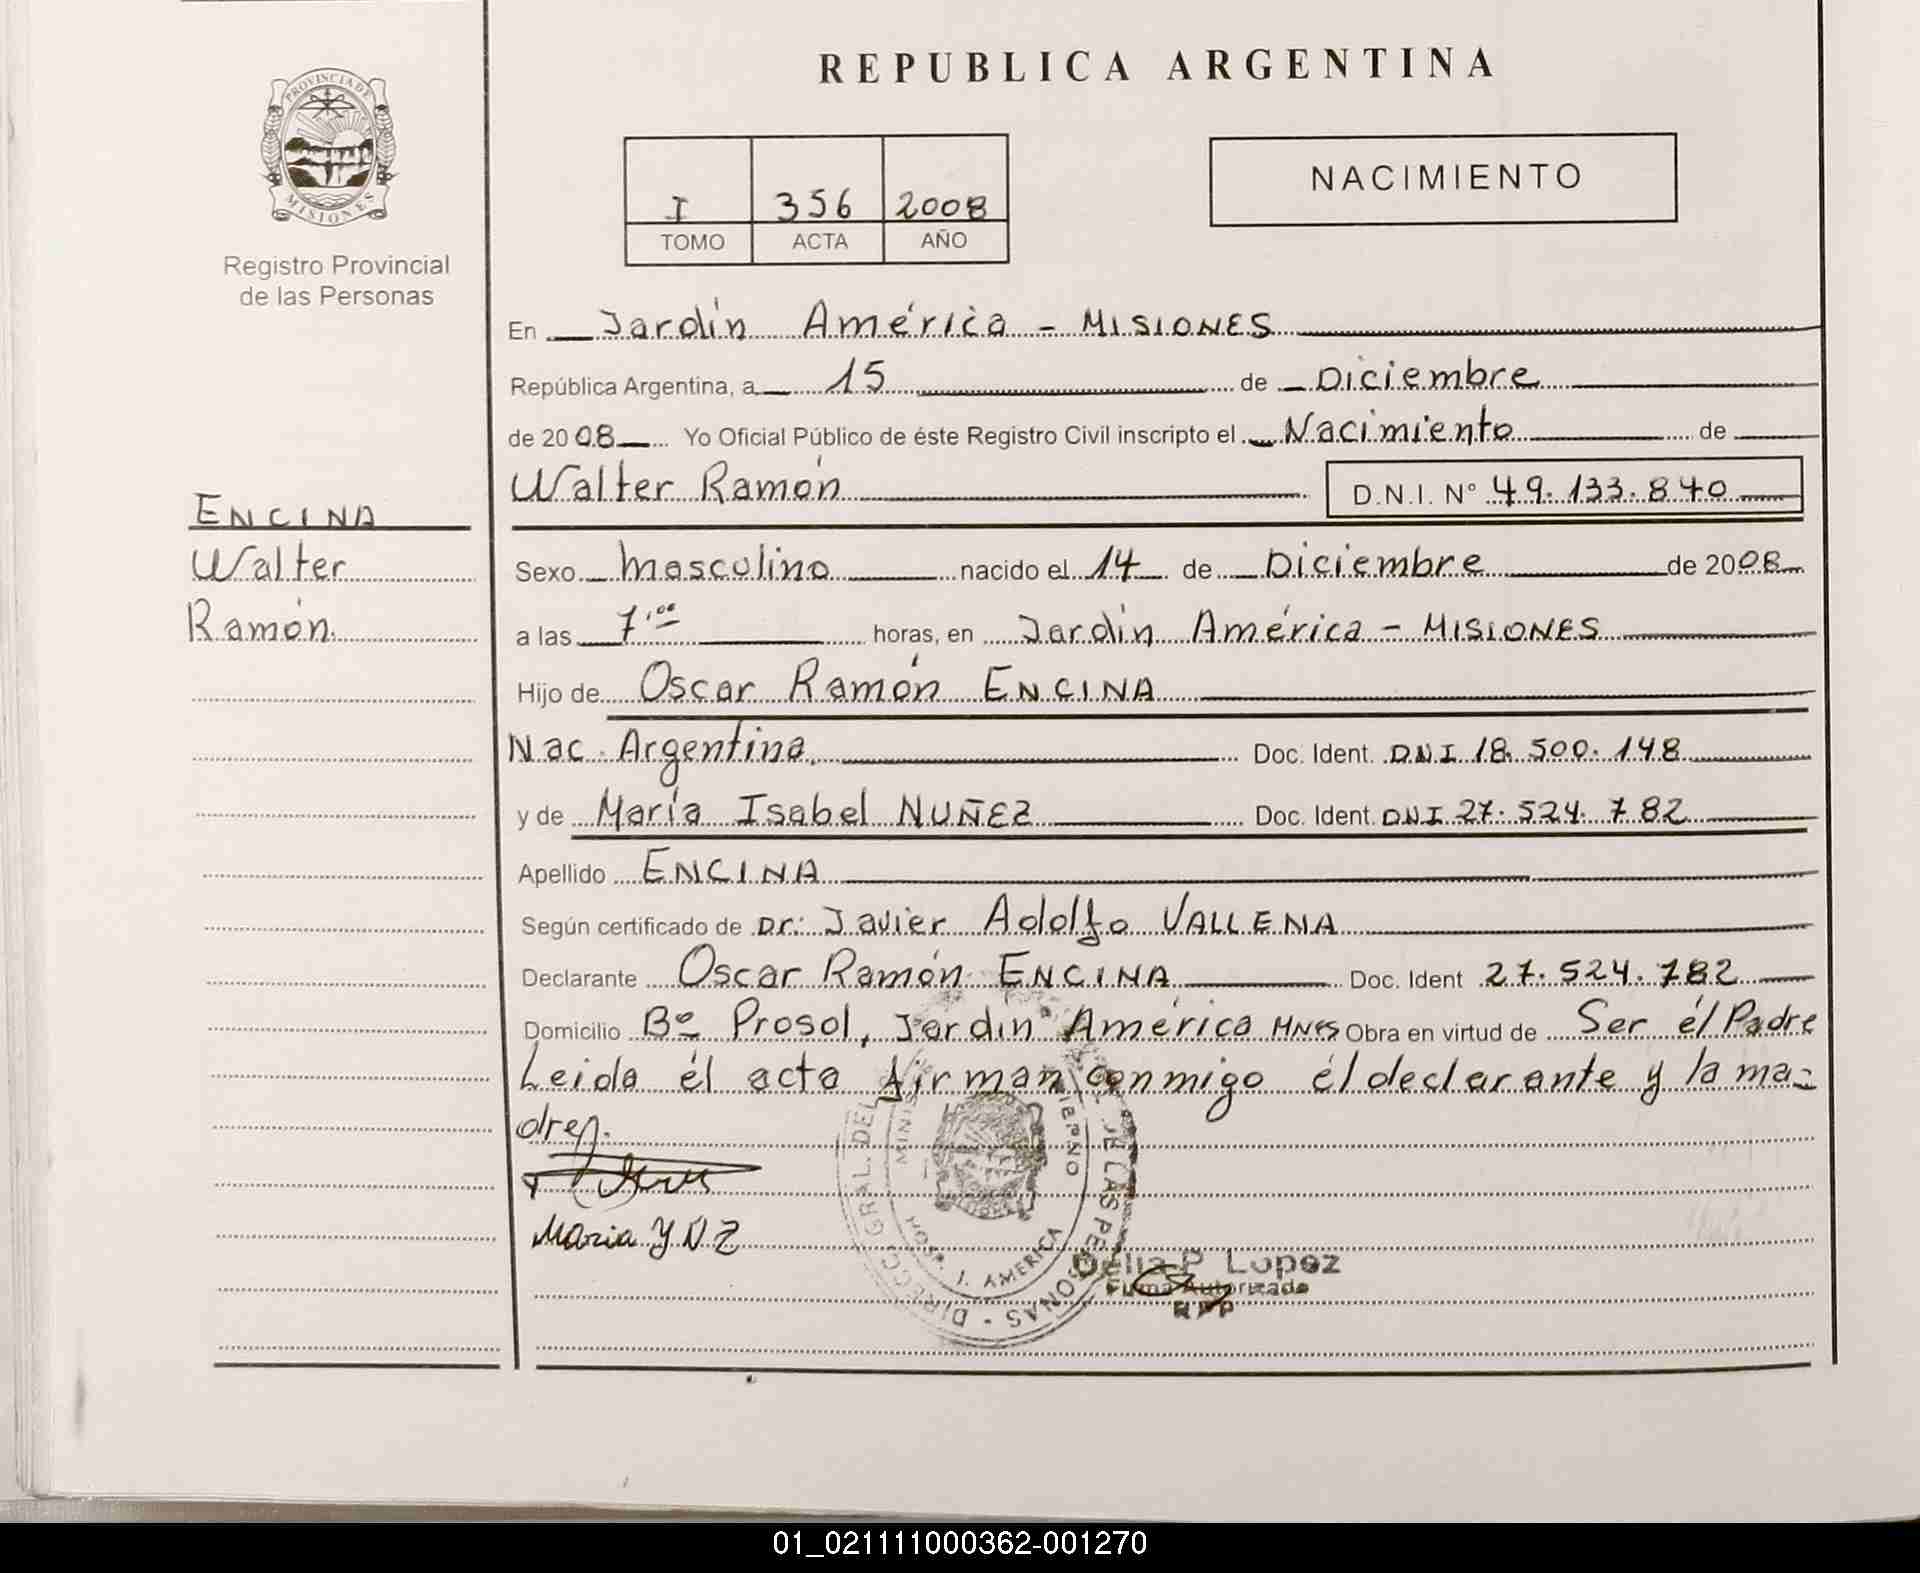 REPUBLICA ARGENTINA
PROVINCIA DE
MISIONES
Registro Provincial
de las Personas
I 356 2008
TOMO ACTA AÑO
NACIMIENTO
En Jardín América - MISIONES
República Argentina, a 15 de Diciembre
de 2008 Yo Oficial Público de éste Registro Civil inscripto el Nacimiento de
Walter Ramón D.N.I. N° 49.133.840
ENCINA
Walter
Ramón.
Sexo Masculino nacido el 14 de Diciembre de 2008
a las 7:00 horas, en Jardín América - MISIONES
Hijo de Oscar Ramón ENCINA
Nac. Argentina. Doc. Ident. DNI 18.500.148
y de María Isabel NUÑEZ Doc. Ident. DNI 27.524.782
Apellido ENCINA
Según certificado de Dr: Javier Adolfo VALLENA
Declarante Oscar Ramón ENCINA Doc. Ident 27.524.782
Domicilio Bº Prosol, Jardín América MNES Obra en virtud de Ser él Padre
Leida él acta firman conmigo él declarante y la ma-
dre.
Maria Y N Z
DIRECC. GRAL. DEL DE LAS PERSONAS
HOSP. J. AMERICA
Delia P Lopez
Firma Autorizada
RPP
01_021111000362-001270